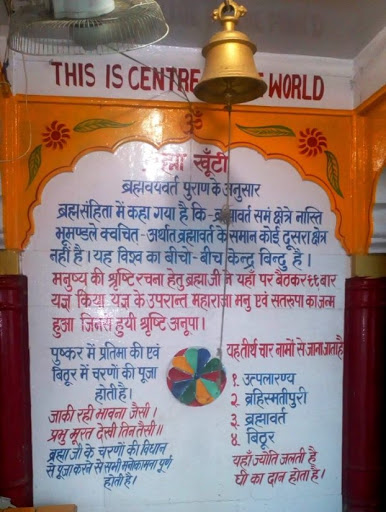 THIS IS CENTRE WORLD
खूँटी
ब्रह्मवयवर्त पुराण के अनुसार
ब्रह्मसंहिता में कहा गया है कि - ब्रह्मावर्त समं क्षेत्रे नास्ति
भूमण्डले क्वचित - अर्थात ब्रह्मावर्त के समान कोई दूसरा क्षेत्र
नहीं है। यह विश्व का बीचो-बीच केन्द्र विन्दु है।
मनुष्य की श्रृष्टि रचना हेतु ब्रह्मा जी ने यहाँ पर बैठकर ६६ बार
यज्ञ किया यज्ञ के उपरान्त महाराजा मनु एवं सतरूपा का जन्म
हुआ जिनसे हुयी श्रृष्टि अनूपा।
पुष्कर में प्रतिमा की एवं
बिठूर में चरणों की पूजा
होती है।
जाकी रही भावना जैसी।
प्रभु मूरत देखी तिन तैसी॥
ब्रह्मा जी के चरणों की विधान
से पूजा करने से सभी मनोकामना पूर्ण
होती है।
यह तीर्थ चार नामों से जाना जाता है
१. उत्पलारण्य
२. ब्रहिस्मतीपुरी
३. ब्रह्मावर्त
४. बिठूर
यहाँ ज्योति जलती है
घी का दान होता है।